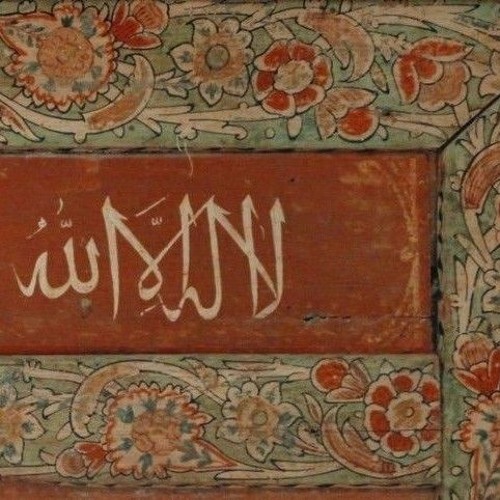 لا اله الّا اللّٰه